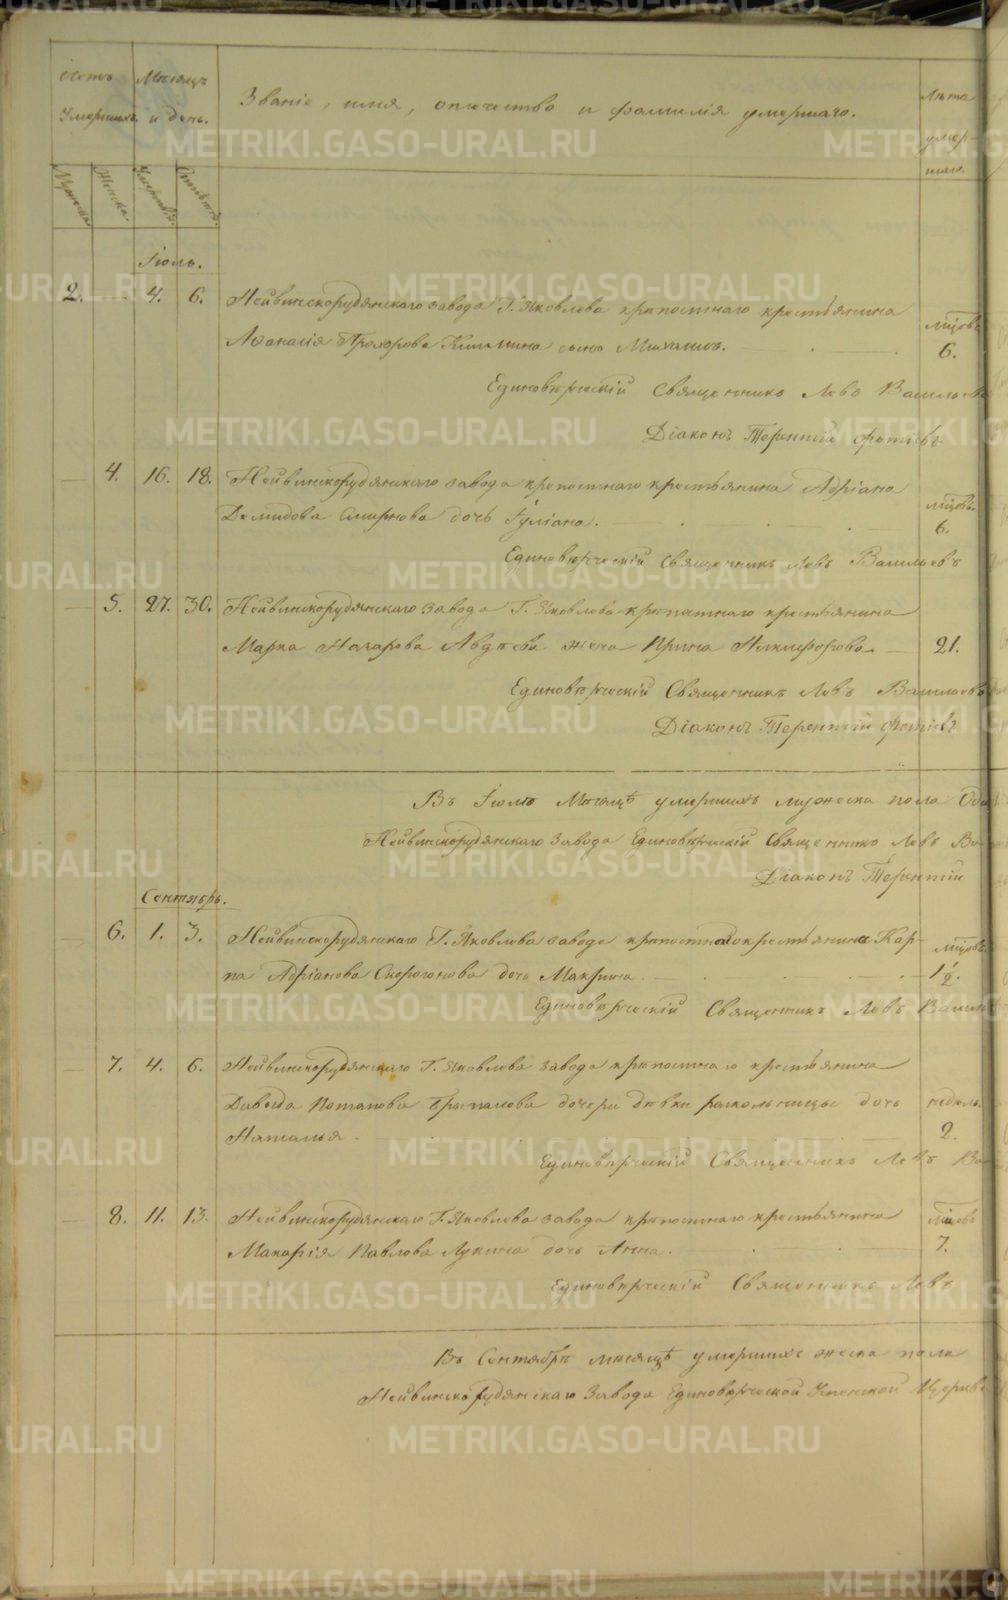 Счетъ Умершихъ
Мѣсяцъ и день.
Званіе, имя, отчество и фамилія умершаго.
Лѣта умер-
шаго.
Мужеска.
Женска.
Іюль.
2. 4. 6. Нейвинскорудянскаго завода Г. Яковлева крѣпостнаго крестьянина
Аѳанасія Прохорова сынъ Михаилъ. мѣсяцовъ 6.
Единовѣрческій Священникъ Левъ Васильевъ
Діаконъ Терентій Фотіевъ
4. 16. 18. Нейвинскорудянскаго завода крѣпостнаго крестьянина Адріана
Демидова Смирнова дочь Іуліана. мѣсяцовъ 6.
Единовѣрческій Священникъ Левъ Васильевъ
5. 27. 30. Нейвинскорудянскаго завода Г. Яковлева крѣпостнаго крестьянина
Марка Назарова Авдѣева жена Ирина Никифорова. 21.
Единовѣрческій Священникъ Левъ Васильевъ
Діаконъ Терентій Фотіевъ
Въ Іюлѣ Мѣсяцѣ умершихъ мужеска пола
Нейвинскорудянскаго Завода Единовѣрческій Священникъ Левъ Ва-
Діаконъ Терентій
Сентябрь.
6. 1. 3. Нейвинскорудянскаго Г. Яковлева завода крѣпостнаго крестьянина Кар-
па Адріанова Скороходова дочь Макрина. мѣсяцовъ 1 1/2.
Единовѣрческій Священникъ Левъ Василь
7. 4. 6. Нейвинскорудянскаго Г. Яковлева завода крѣпостнаго крестьянина
Давыда Потапова дочери дѣвки раскольницы дочь недѣль
Наталья. 2.
Единовѣрческій Священникъ Левъ Ва
8. 11. 13. Нейвинскорудянскаго Г. Яковлева завода крѣпостнаго крестьянина мѣсяцовъ
Макарія Павлова Лукина дочь Анна. 7.
Единовѣрческій Священникъ Левъ
Въ Сентябрѣ мѣсяцѣ умершихъ женска пола
Нейвинскорудянскаго Завода Единовѣрческой Успенской Церкви
METRIKI.GASO-URAL.RU